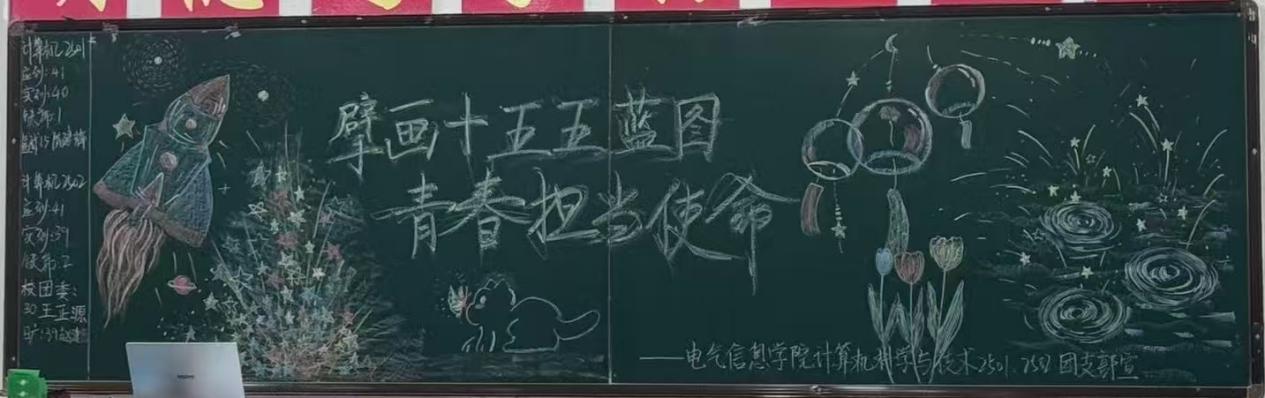 计算机2501
应到:41
实到:40
请假:1
计算机2502
应到:41
实到:39
请假:2
校团委:
30王正源
擘画十五五蓝图
青春担当使命
——电气信息学院计算机科学与技术2501、2502团支部宣